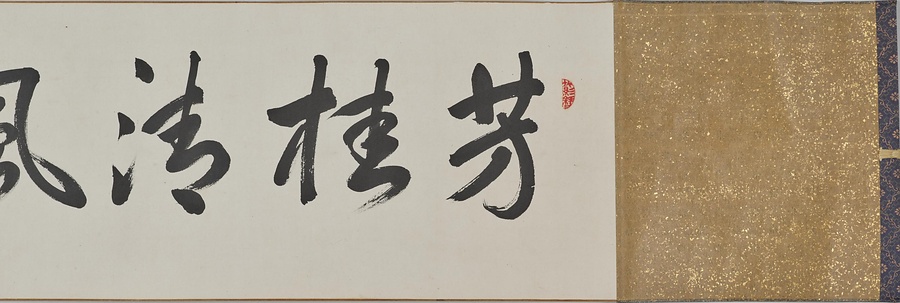 芳桂清風